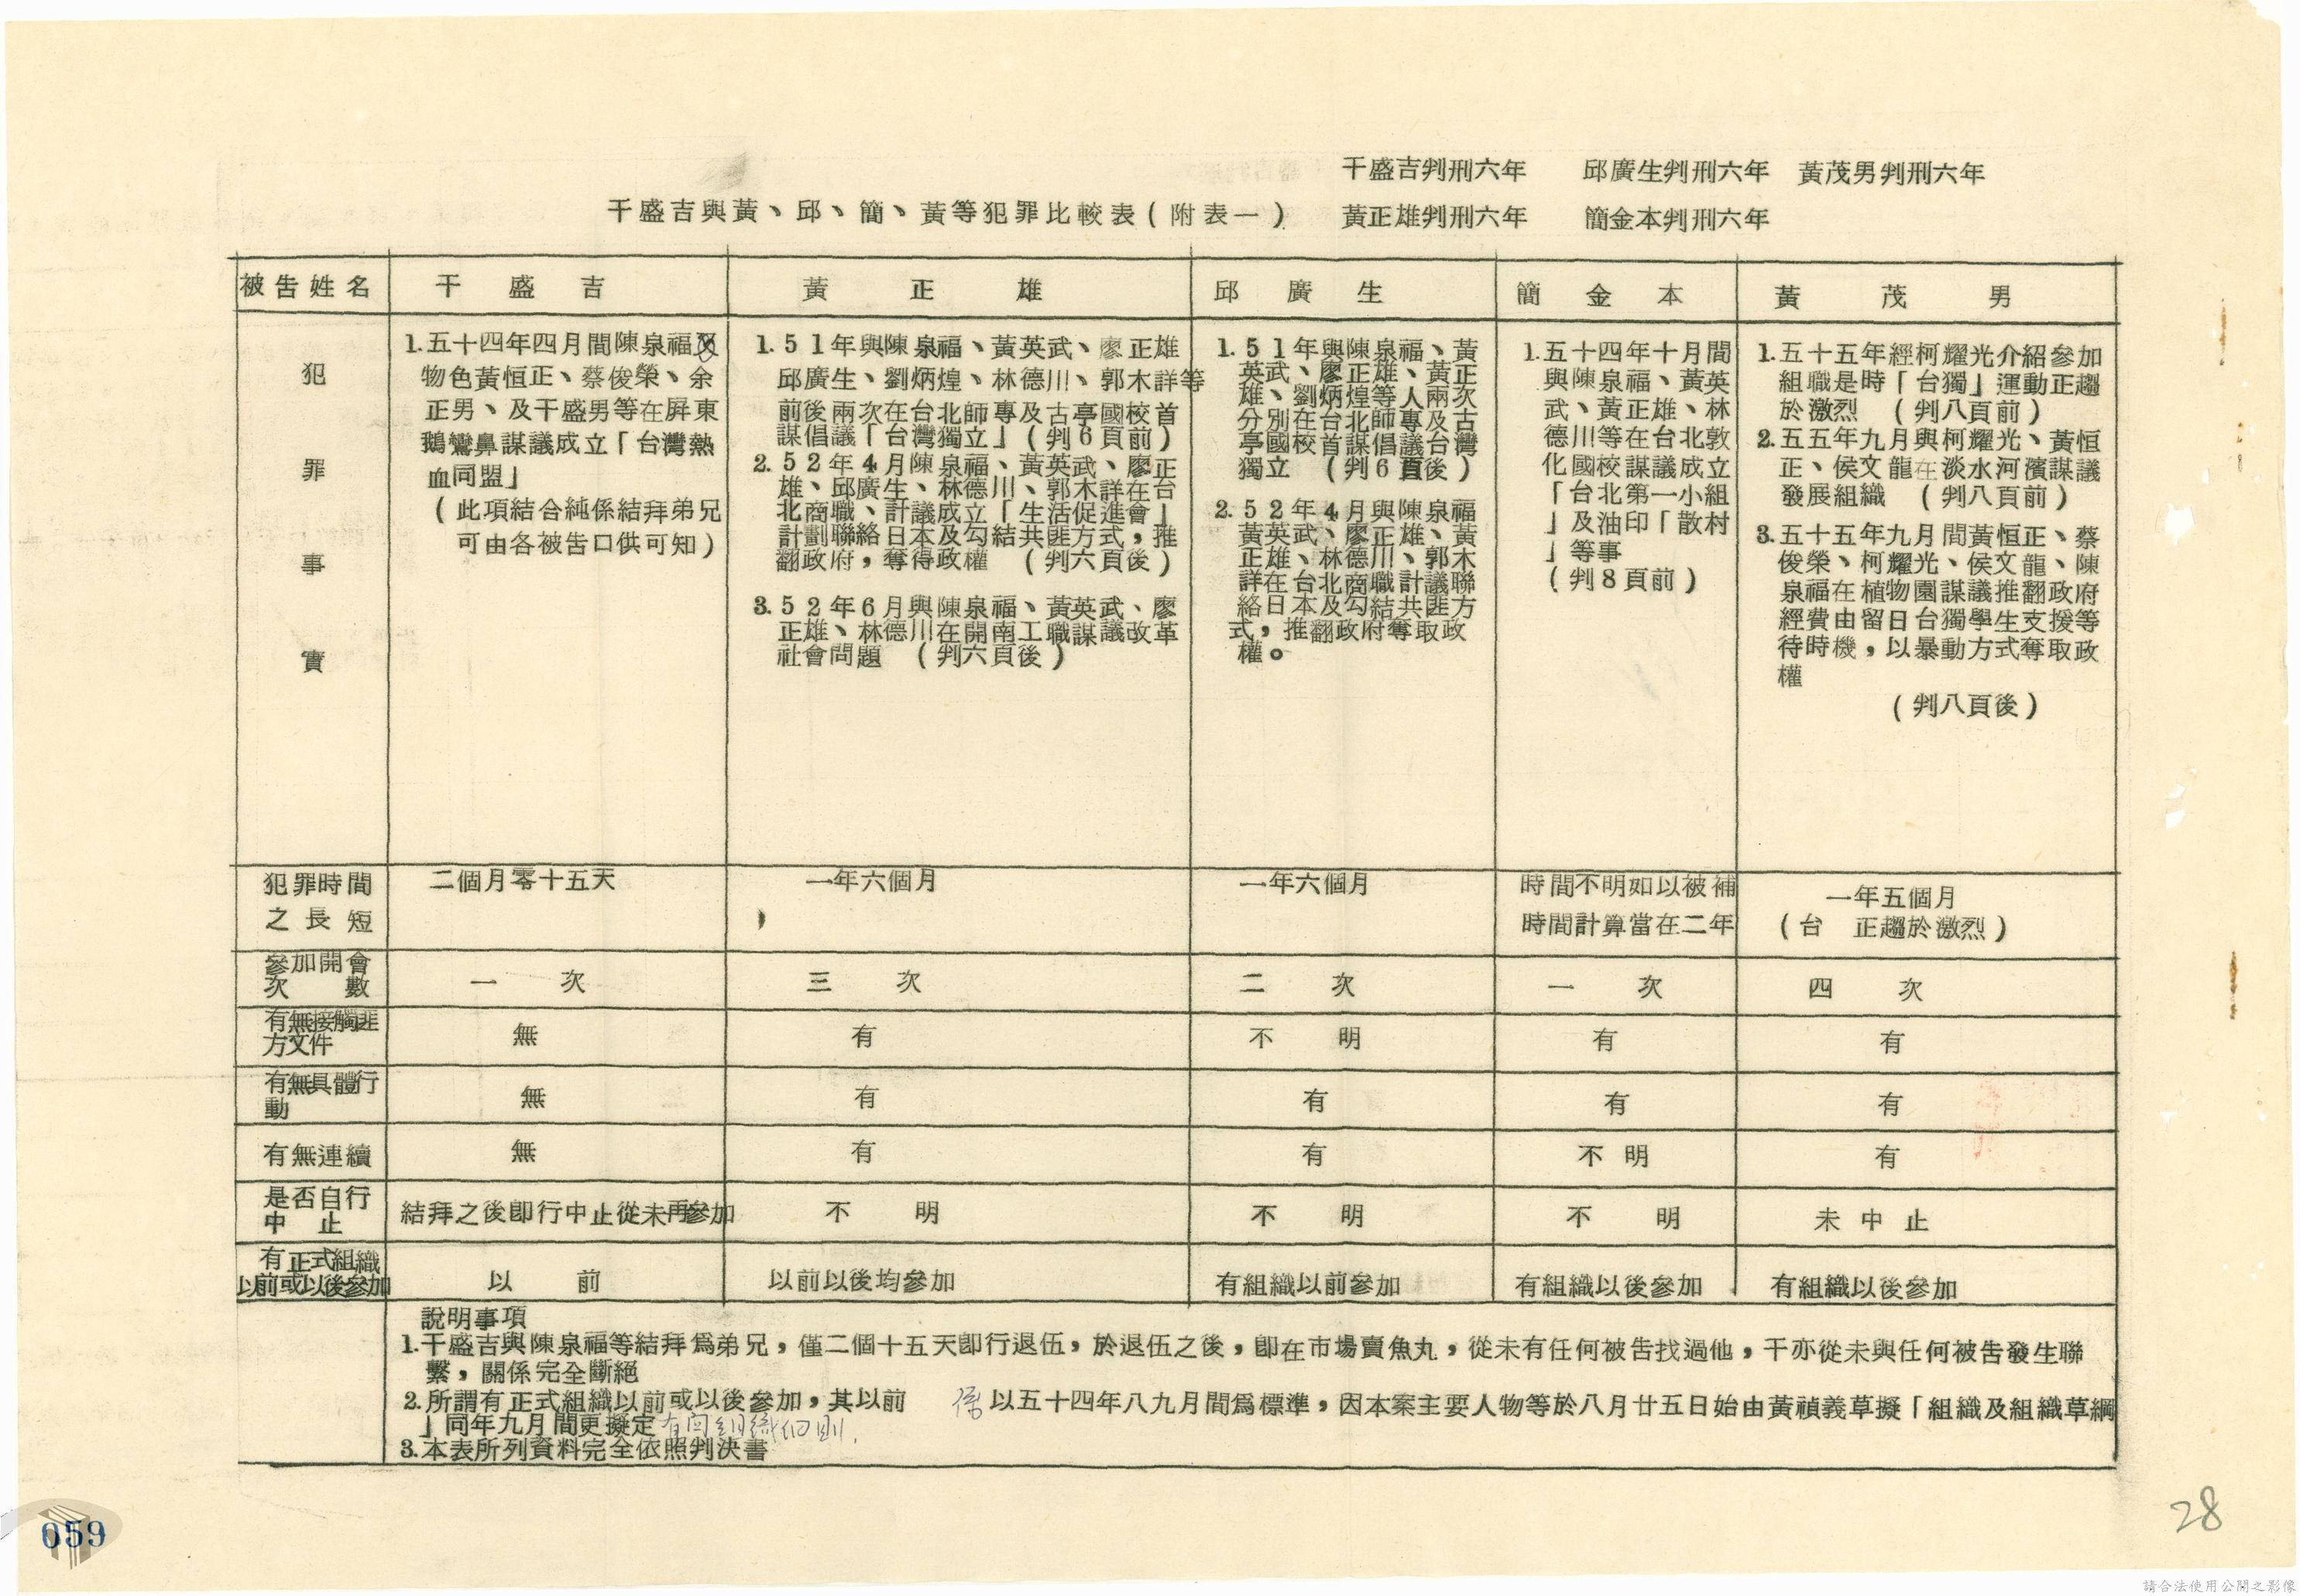 干盛吉判刑六年　邱廣生判刑六年　黃茂男判刑六年
干盛吉與黃、邱、簡、黃等犯罪比較表(附表一)　黃正雄判刑六年　簡金本判刑六年
被告姓名　干盛吉　黃正雄　邱廣生　簡金本　黃茂男
犯罪事實
1.五十四年四月間陳泉福
物色黃恒正、蔡俊榮、余
正男、及干盛男等在屏東
鵝鸞鼻謀議成立「台灣熱
血同盟」
(此項結合純係結拜弟兄
可由各被告口供可知)
1.51年與陳泉福、黃英武、廖正雄
邱廣生、劉炳煌、林德川、郭木詳等
前後兩次在台北師專及古亭國校首
謀倡議「台灣獨立」(判6頁前)
2.52年4月陳泉福、黃英武、廖正
雄、邱廣生、林德川、郭木詳在台
北商職、計議成立「生活促進會」
計劃聯絡、日本及勾結共匪方式,推
翻政府,奪得政權　(判六頁後)
3.52年6月與陳泉福、黃英武、廖
正雄、林德川在開南工職謀議改革
社會問題　(判六頁後)
1.51年與陳泉福、黃
英武、廖正雄、黃正
雄、劉炳煌等人兩次
分別在台北師專及古
亭國校首謀倡議台灣
獨立　(判6頁後)
2.52年4月與陳泉福
黃英武、廖正雄、黃
正雄、林德川、郭木
詳在台北商職計議聯
絡日本及勾結共匪方
式,推翻政府奪取政
權。
1.五十四年十月間
與陳泉福、黃英
武、黃正雄、林
德川等在台北敦
化國校謀議成立
「台北第一小組
」及油印「散村
」等事
(判8頁前)
1.五十五年經柯耀光介紹參加
組職是時「台獨」運動正趨
於激烈　(判八頁前)
2.五五年九月與柯耀光、黃恒
正、侯文龍在淡水河濱謀議
發展組織　(判八頁前)
3.五十五年九月間黃恒正、蔡
俊榮、柯耀光、侯文龍、陳
泉福在植物園謀議推翻政府
經費由留日台獨學生支援等
待時機,以暴動方式奪取政
權
(判八頁後)
犯罪時間
之長短
二個月零十五天
一年六個月
一年六個月
時間不明如以被補
時間計算當在二年
一年五個月
(台　正趨於激烈)
參加開會
次數
一次　三次　二次　一次　四次
有無接觸匪
方文件
無　有　不明　有　有
有無具體行
動
無　有　有　有　有
有無連續　無　有　有　不明　有
是否自行
中止
結拜之後卽行中止從未再參加　不明　不明　不明　未中止
有正式組織
以前或以後參加
以前　以前以後均參加　有組織以前參加　有組織以後參加　有組織以後參加
說明事項
1.干盛吉與陳泉福等結拜爲弟兄,僅二個十五天卽行退伍,於退伍之後,卽在市場賣魚丸,從未有任何被告找過他,干亦從未與任何被告發生聯
繫,關係完全斷絕
2.所謂有正式組織以前或以後參加,其以前　係以五十四年八九月間爲標準,因本案主要人物等於八月廿五日始由黃禎義草擬「組織及組織草綱
」同年九月間更擬定有關組織細則.
3.本表所列資料完全依照判決書
059
28
請合法使用公開之影像